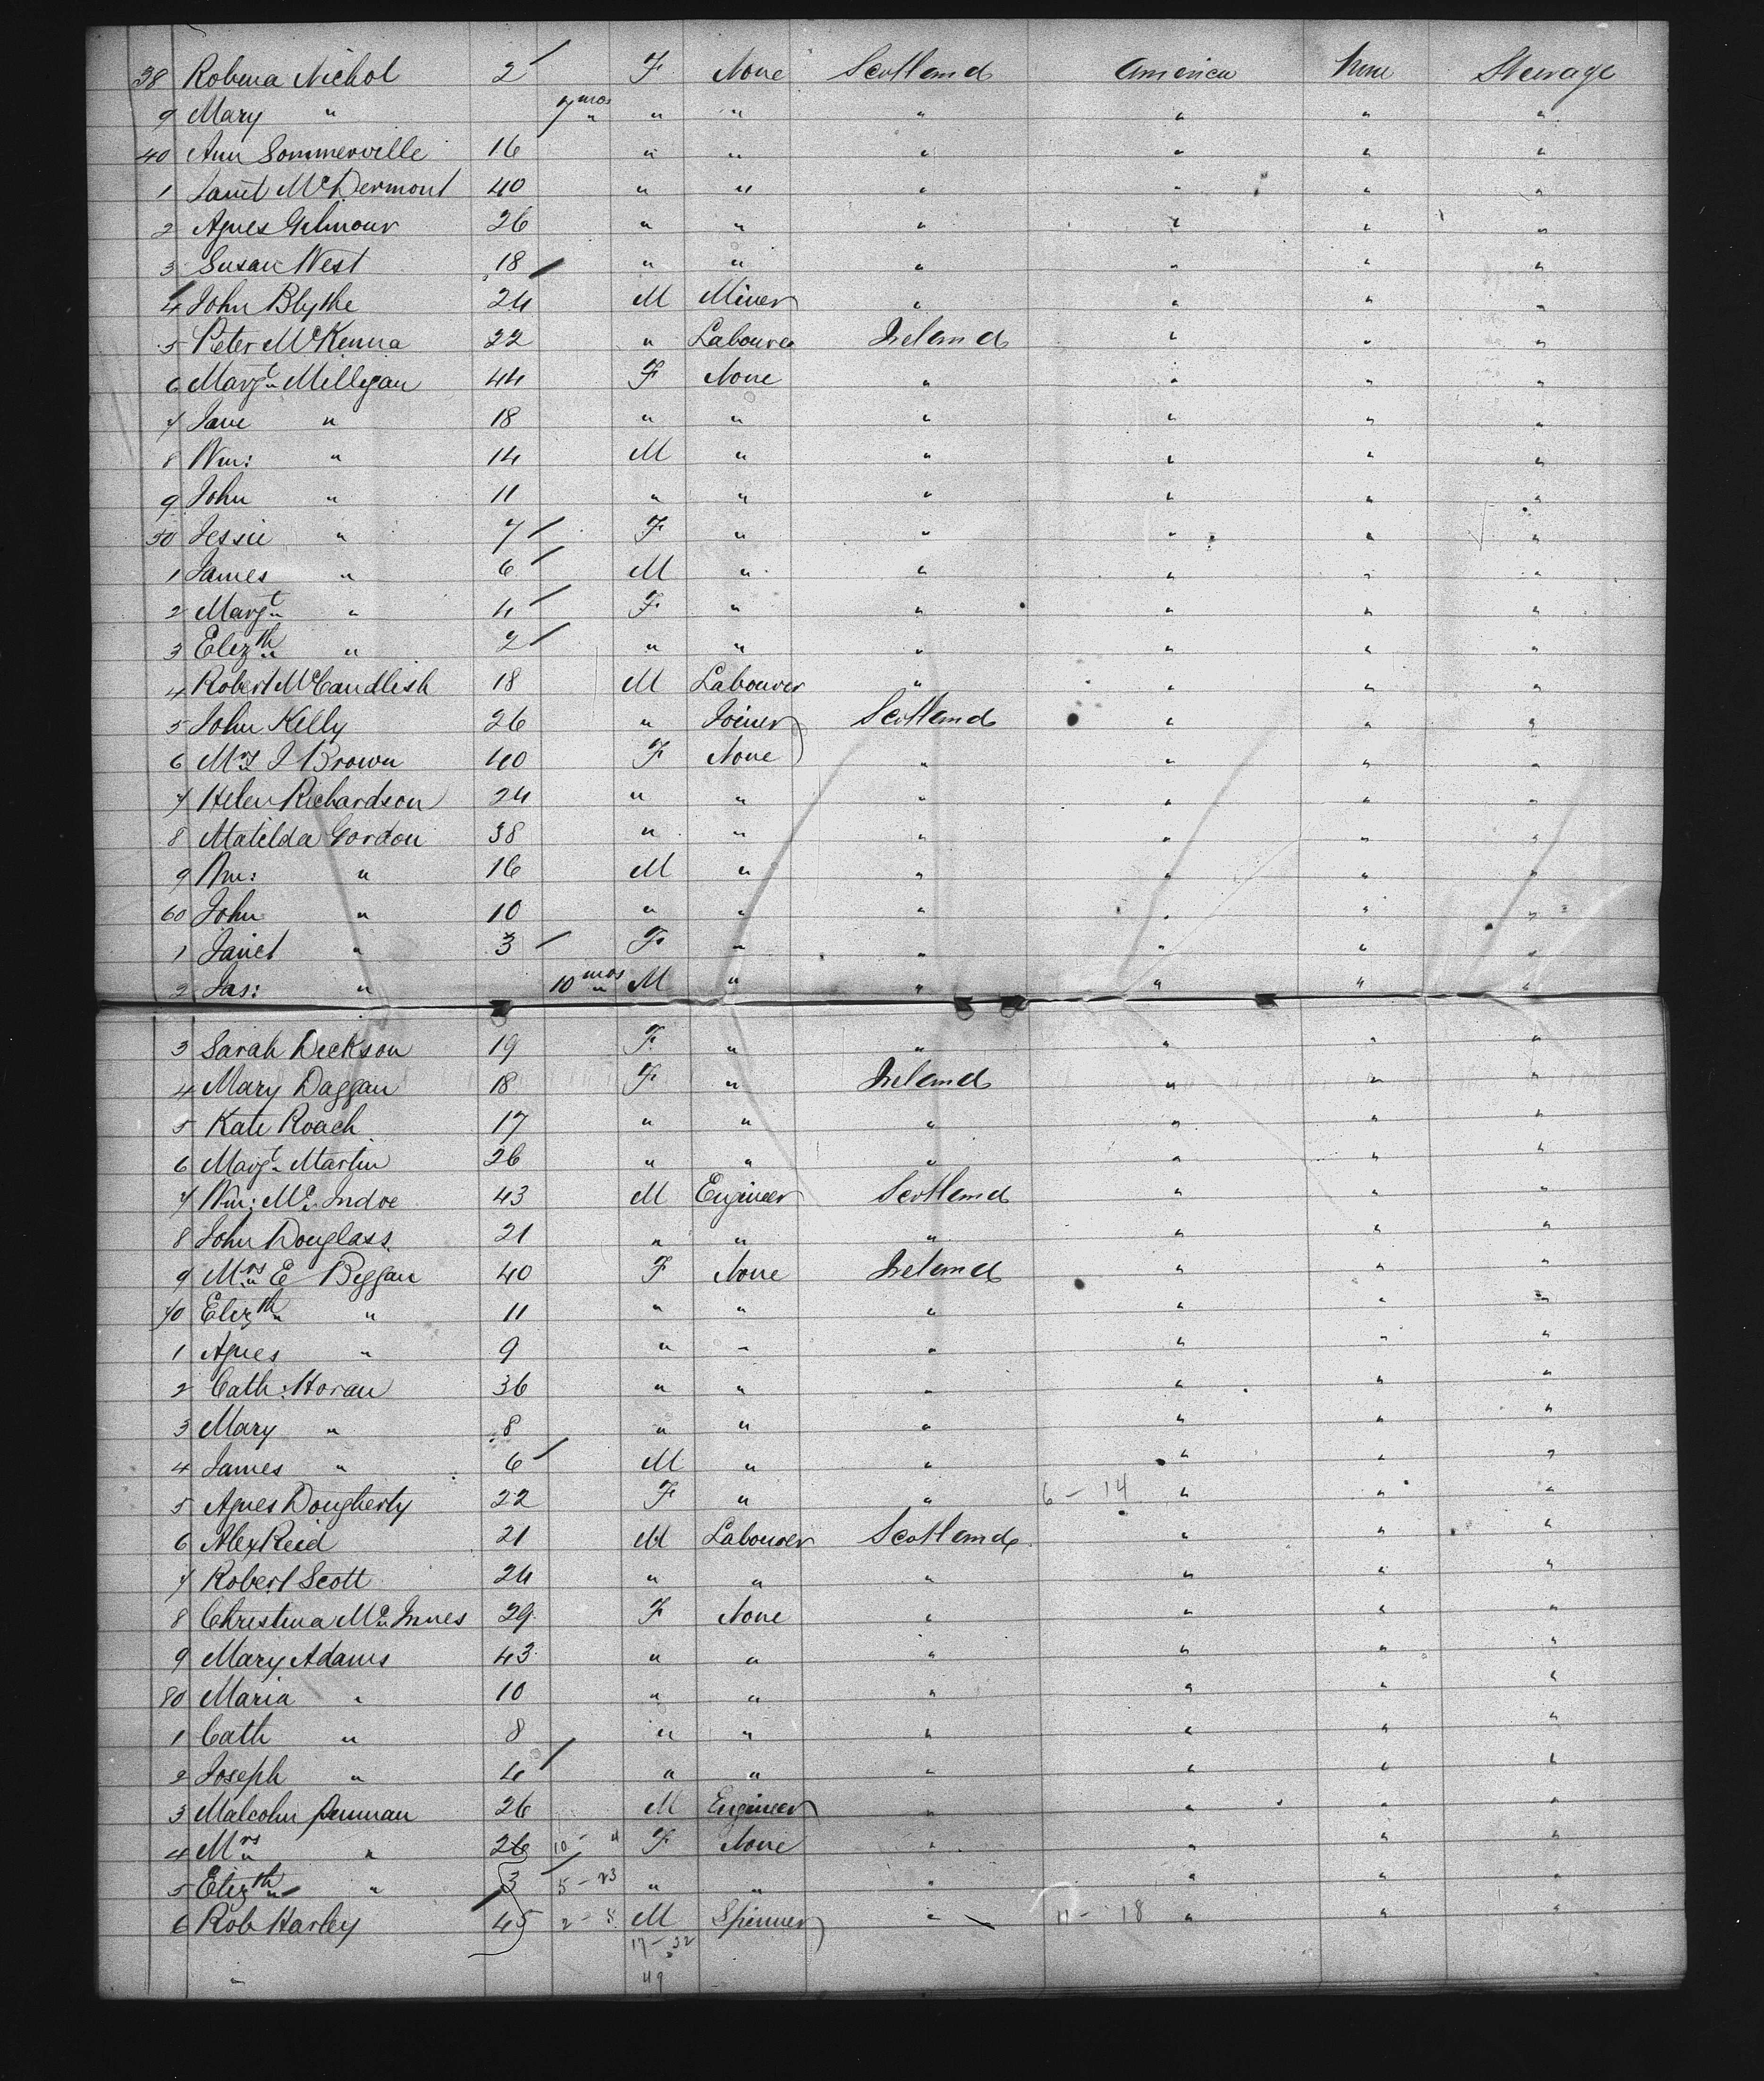 38 Robina Nichol 2 F None Scotland America None Steerage
9 Mary " 7 mos " " " " " "
40 Ann Sommerville 16 " " " " " "
1 Janet McDermont 40 " " " " " "
2 Agnes Gilmour 26 " " " " " "
3 Susan West 18 " " " " " "
4 John Blythe 24 M Miner " " " "
5 Peter McKenna 22 " Labourer Ireland " " "
6 Margt Milligan 44 F None " " " "
7 Jane " 18 " " " " " "
8 Wm: " 14 M " " " " "
9 John " 11 " " " " " "
50 Jessie " 7 F " " " " "
1 James " 6 M " " " " "
2 Margt " 4 F " " " " "
3 Elizth " 2 " " " " " "
4 Robert McCandlish 18 M Labourer " " " "
5 John Kelly 26 " Joiner Scotland " " "
6 Mrs J Brown 40 F None " " " "
7 Helen Richardson 24 " " " " " "
8 Matilda Gordon 38 " " " " " "
9 Wm: " 16 M " " " " "
60 John " 10 " " " " " "
1 Janet " 3 F " " " " "
2 Jas: " 10 mos M " " " " "
3 Sarah Dickson 19 F " " " " "
4 Mary Daggan 18 F " Ireland " " "
5 Kate Roach 17 " " " " " "
6 Margt Martin 26 " " " " " "
7 Wm: Mc Indoe 43 M Engineer Scotland " " "
8 John Douglass 21 " " " " " "
9 Mrs E Beggan 40 F None Ireland " " "
70 Elizth " 11 " " " " " "
1 Agnes " 9 " " " " " "
2 Cath: Horan 36 " " " " " "
3 Mary " 8 " " " " " "
4 James " 6 M " " " " "
5 Agnes Dougherty 22 F " " 6 - 14 " " "
6 Alex Reid 21 M Labourer Scotland " " "
7 Robert Scott 24 " " " " " "
8 Christina Mc Innes 29 F None " " " "
9 Mary Adams 43 " " " " " "
80 Maria " 10 " " " " " "
1 Cath " 8 " " " " " "
2 Joseph " 4 " " " " " "
3 Malcolm Penman 26 M Engineer " " " "
4 Mrs " 26 10 - 4 F None " " " "
5 Elizth " 3 5 - 23 " " " " " "
6 Rob Harley 45 2 - 5 M Spinner " 11 - 18 " " "
17 - 32
"
49